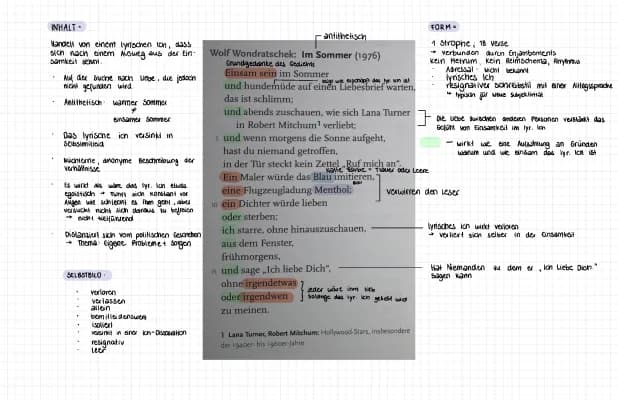 INHALT:
Handelt von einem lyrischen Ich, dass
sich nach einem Ausweg aus der Ein-
samkeit sehnt.
· Auf der Suche nach Liebe, die jedoch
nicht gefunden wird
· Antithetisch: warmer Sommer
≠
einsamer Sommer
· Das lyrische Ich versinkt in
Selbstmitleid
· Nüchterne, anonyme Beschreibung der
Verhältnisse
· Es wirkt als wäre das lyr. Ich etwas
egoistisch → führt sich konstant vor
Augen wie schlecht es ihm geht, aber
versucht nicht sich daraus zu befreien
→ nicht zielführend
· Distanziert sich vom politischen Geschehen
→ Thema: Eigene Probleme + Sorgen
SELBSTBILD:
· verloren
· verlassen
· allein
· bemitleidenswert
· isoliert
· versinkt in einer Ich-Obsession
· resignativ
· leer
antithetisch
Wolf Wondratschek: Im Sommer (1976)
Grundgedanke des Gedichts
Einsam sein im Sommer
zeigt wie erschöpft das lyr. Ich ist
und hundemüde auf einen Liebesbrief warten,
das ist schlimm;
und abends zuschauen, wie sich Lana Turner
in Robert Mitchum¹ verliebt;
5 und wenn morgens die Sonne aufgeht,
hast du niemand getroffen,
in der Tür steckt kein Zettel „Ruf mich an“.
kalte Farbe = Trauer oder Leere
Ein Maler würde das Blau imitieren,
eine Flugzeugladung Menthol;
10 ein Dichter würde lieben
oder sterben;
ich starre, ohne hinauszuschauen,
aus dem Fenster,
frühmorgens,
15 und sage „Ich liebe Dich“,
ohne irgendetwas
oder irgendwen
zu meinen.
jeder wäre ihm lieb
solange das lyr. Ich geliebt wird
1 Lana Turner, Robert Mitchum: Hollywood-Stars, insbesondere
der 1940er- bis 1960er-Jahre
FORM:
1 Strophe, 18 Verse
→ verbunden durch Enjambements
kein Metrum, kein Reimschema, Rhythmus
· Adressat: nicht bekannt
· lyrisches Ich
· resignativer Schreibstil mit einer Alltagssprache
→ typisch für Neue Subjektivität
Die Liebe zwischen anderen Personen verstärkt das
Gefühl von Einsamkeit im lyr. Ich
→ wirkt wie eine Aufzählung an Gründen
warum und wie einsam das lyr. Ich ist
verwirren den Leser
lyrisches Ich wirkt verloren
→ verliert sich selber in der Einsamkeit
Hat Niemanden zu dem er „Ich liebe Dich“
sagen kann